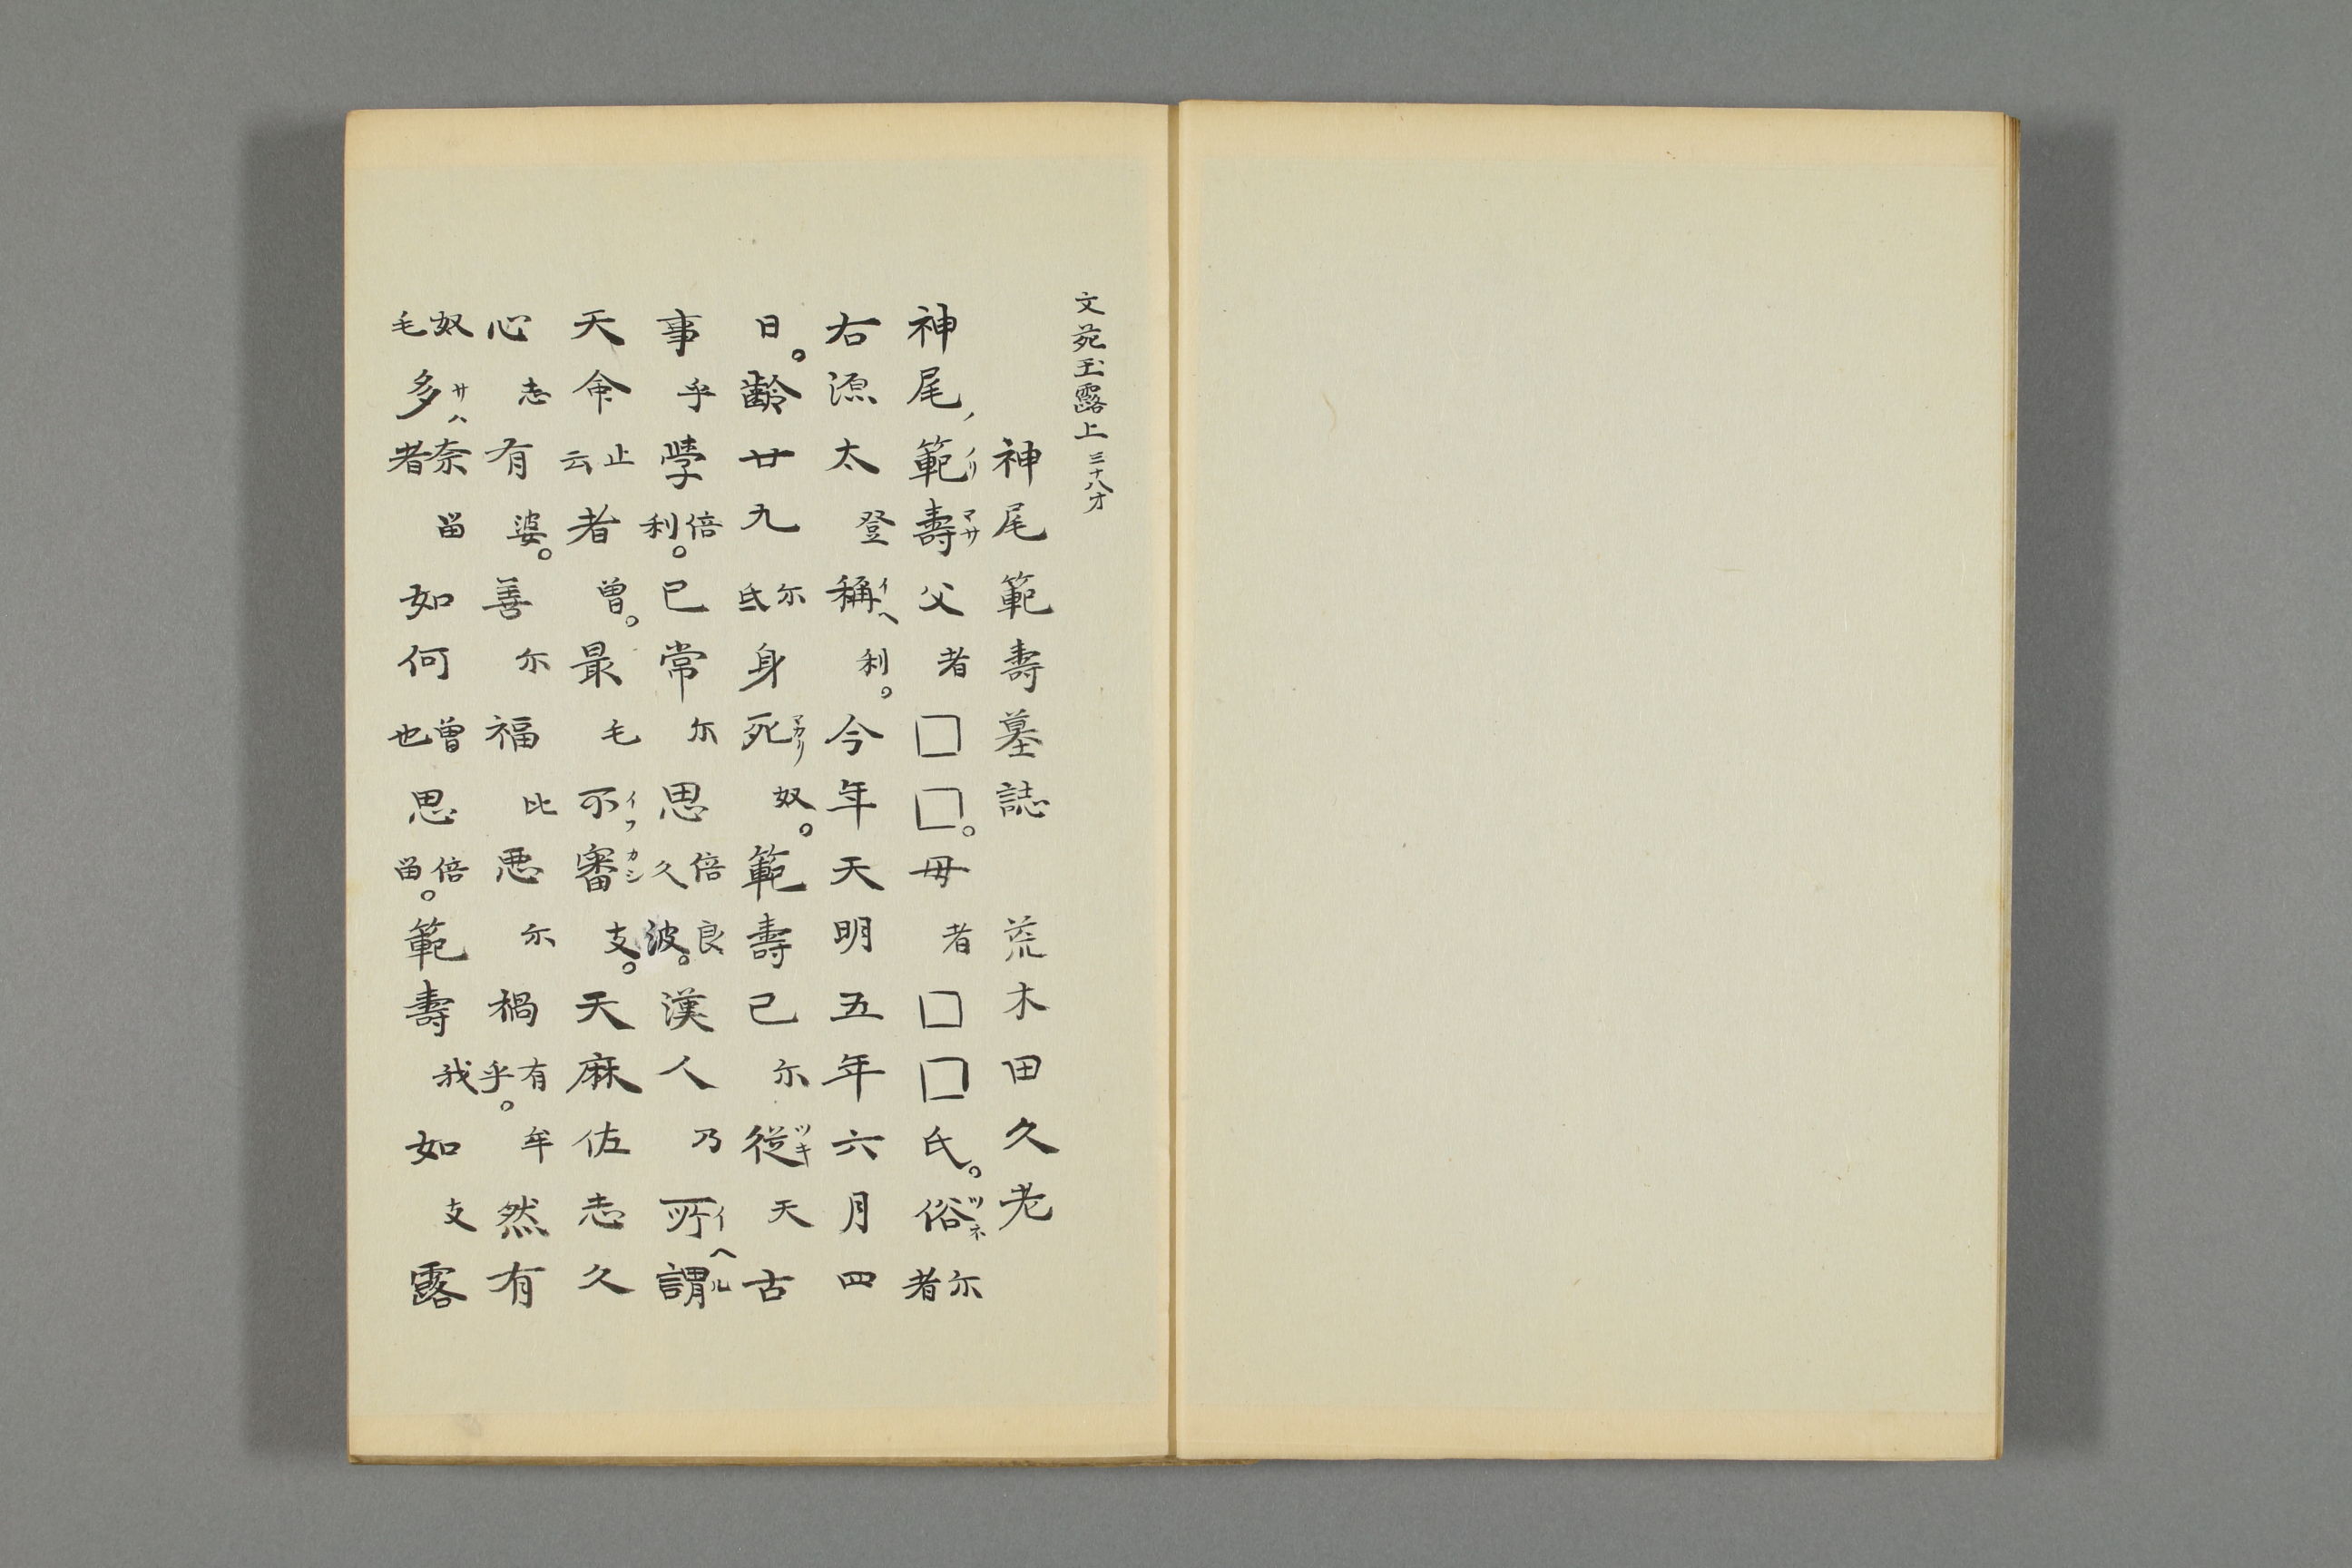 文苑玉露上 三十八オ
神尾範壽墓誌　荒木田久老
神尾ノ範ノリ壽マサ父者□□。母者□□氏。俗ツネ尓者
右源太登稱イヘ利。今年天明五年六月四
日。齡廿九尓氐身死マカリ奴。範壽己尓從ツキ天古
事乎學倍利。已常尓思倍良久波。漢人乃所イ謂ヘル
天命止云者曾。最毛不イフ審カシ支。天麻佐志久
心志有婆。善尓福比惡尓禍有乎。牟然有
奴毛多サハ奈者留如何曾也思倍留。範壽我如支露